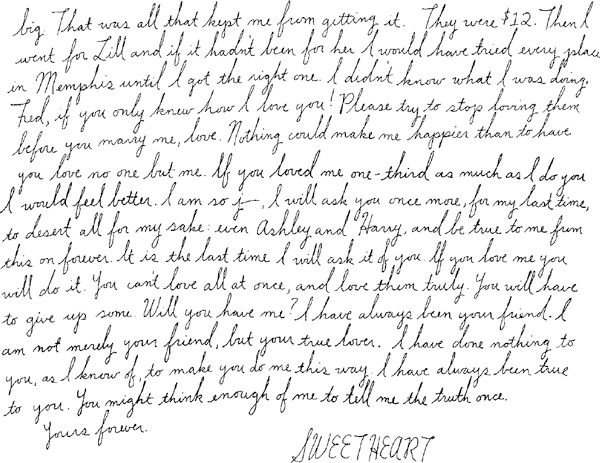 big. That was all that kept me from getting it. They were $12. Then I
went for Lill and if it hadn't been for her I would have tried every place
in Memphis until I got the right one. I didn't know what I was doing.
Fred, if you only knew how I love you! Please try to stop loving them
before you marry me, love. Nothing could make me happier than to have
you love no one but me. If you loved me one-third as much as I do you
I would feel better. I am so j—, I will ask you once more, for my last time,
to desert all for my sake: even Ashley and Harry, and be true to me from
this on forever. It is the last time I will ask it of you. If you love me you
will do it. You can't love all at once, and love them truly. You will have
to give up some. Will you have me? I have always been your friend. I
am not merely your friend, but your true lover. I have done nothing to
you, as I know of, to make you do me this way. I have always been true
to you. You might think enough of me to tell me the truth once.
Yours forever.
SWEETHEART